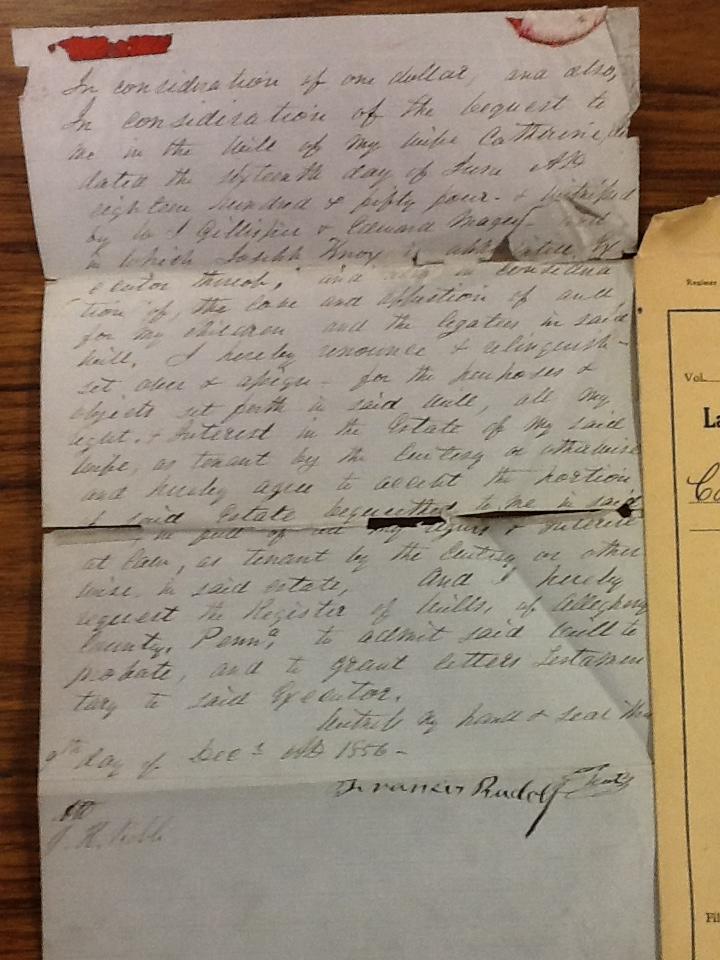 In consideration of one dollar, and also,
In consideration of the bequest to
me in the Will of my wife Catherine,
dated the sixteenth day of June AD
eighteen hundred & fifty four - & witnessed
by W J Gillispie & Edward Magee - and
in which Joseph Knox is appointed Ex
ecutor thereof, and also in considera
tion of, the love and affection of and
for my children and the legatees in said
will, I hereby renounce & relinquish -
set over & assign - for the purposes &
objects set forth in said will, all my
right & Interest in the Estate of my said
wife, as tenant by the Curtesy or otherwise
and hereby agree to accept the portion
of said Estate bequeathed to me in said
in full of all my rights & Interest
at law, as tenant by the Curtesy or other
wise, in said estate, And I hereby
request the Register of Wills, of Allegheny
County, Penna, to admit said will to
probate, and to grant letters Testamen
tary to said Executor.
Witness my hand & seal this
9th day of Decr AD 1856 -
Francis Rudolf
Register
Vol.
La
Fil